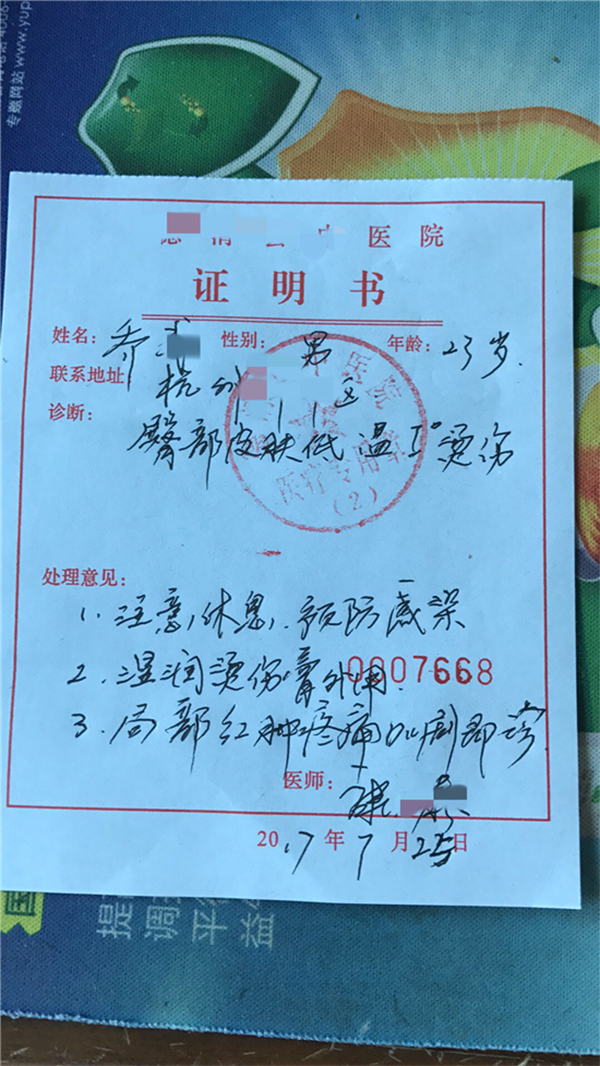 专题网站 www.yup
医院
证 明 书
姓名: 乔 性别: 男 年龄: 23岁.
联系地址 杭州 区
诊断:
臀部皮肤低温I°烫伤
医院
医疗专用章
(2)
处理意见:
1. 注意休息, 预防感染
2. 湿润烫伤膏外用.
0007668
3. 局部红肿疼痛加剧即诊
医师:
2017年7月25日
国
提
调
平
益